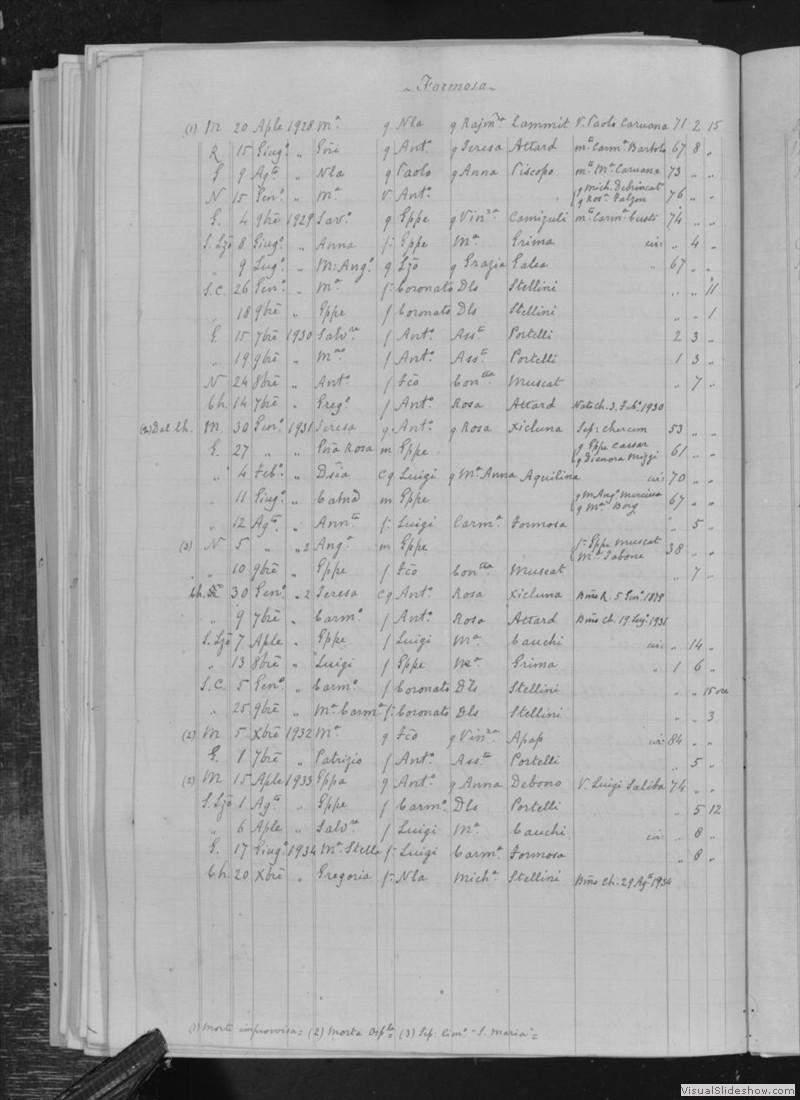 Formosa
(1) M 20 Aple 1928 Ma. g Nla g Rajmda Cammit V. Paolo Caruana 71 2 15
R 15 Giugo „ g Anto. g Teresa Attard ma Carma Bartolo 67 8 „
G 9 Agto. „ Nla g Paolo g Anna Piscopo ma Ma Caruana 73 „ „
N 15 Geno. „ Ma. V. Anto. g Mich. Debrincat g Rosa Falzon 76 „ „
G. 4 9bre 1929 Savo. g Gppe g Vinza Camizuli ma Carma Custi 74 „ „
S. Lzo 8 Giugo „ Anna f. Gppe Ma. Grima „ 4 „
„ 9 Lugo. „ M: Ango. g Lzo g Grazia Galea „ 67 „ „
S.C. 26 Geno. „ Ma. f. Coronato Dls Stellini „ „ 11
„ 18 9bre „ Gppe f Coronato Dls Stellini „ „ 1
G. 15 7bre 1930 Salvre f Anto. Assta Portelli 2 3 „
„ 19 9bre „ f Anto. Assta Portelli 1 3 „
N 24 8bre „ Anto. f Fco Concta Muscat „ 7 „
Ch. 14 7bre „ Grego. f Anto. Rosa Attard Nato ch. 3. Febo. 1930
(2) Dal Ch. M 30 Geno. 1931 Teresa g Anto. g Rosa Xicluna Sep: chercem 53 „ „
G. 27 „ „ Rosa m Gppe g Gppe Cassar g Dienora Mizzi 61 „ „
„ 4 Febo. „ cg Luigi g Ma Anna Aquilina 70 „ „
„ 11 Giugo. „ m Gppe g M Ango g Ma Borg 67 „ „
„ 12 Agto. „ Annta f. Luigi Carma. Formosa „ 5 „
(3) N 5 „ „2 Anga m Gppe f. Gppe Muscat Ma Tabone 38 „ „
„ 10 9bre „ Gppe f Fco Concta Muscat „ 7 „
Ch. 30 Geno. „2 Teresa cg Anto. Rosa Xicluna R. 5
„ 9 7bre „ Carmo. f Anto. Rosa Attard Ch. 19 Lugo. 1931
S. Lzo 7 Aple „ Gppe f Luigi Ma. Cauchi „ 14 „
„ 13 8bre „ Luigi f Gppe Ma. Grima „ 1 6 „
S.C. 5 Geno. „ Carmo. f Coronato Dls Stellini „ „ 15 ore
„ 25 9bre „ Ma Carma f. Coronato Dls Stellini „ „ 3
(2) M 5 Xbre 1932 Ma. g Fco g Vinza Apap 84 „ „
G. 1 7bre „ Patrizio f Anto. Assta Portelli „ 5 „
(2) M 15 Aple 1933 Gppa g Anto. g Anna Debono V. Luigi Saliba 74 „ „
S. Lzo 1 Agto. „ Gppe f Carmo. Dls Portelli „ 5 12
„ 6 Aple „ Salvre f Luigi Ma. Cauchi „ 8 „
G. 17 Giugo 1934 Ma Stella f. Luigi Carma. Formosa „ 8 „
Ch. 20 Xbre „ Gregoria f. Nla Micha Stellini Ch. 29 Ago 1934
(1) Morte improvvisa= (2) Morta Osple= (3) Sep: Cimo "S. Maria"=
VisualSlideshow.com